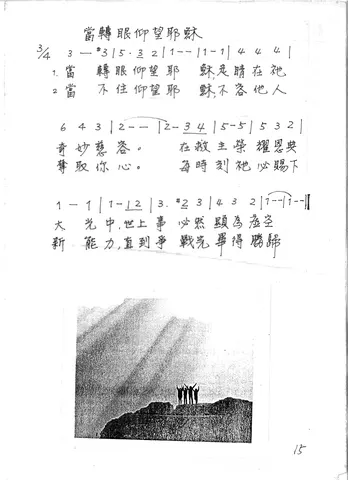 當轉眼仰望耶穌
3/4 3 — #3 | 5 · 3 2 | 1 - - | 1 - 1 | 4 4 4 |
1. 當 轉眼仰望耶 穌,是睛在祂
2 當 不住仰望耶 穌,不容他人
6 4 3 | 2 - - | 2 - 3 4 | 5 - 5 | 5 3 2 |
奇妙慈容。 在救主榮耀恩典
奪取你心。 每時刻祂必賜下
1 - 1 | 1 - 1 2 | 3 . #2 3 | 4 3 2 | 1 - - | 1 - - ‖
大光中,世上事必然顯為虛空
新能力,直到爭戰完畢得勝歸
15